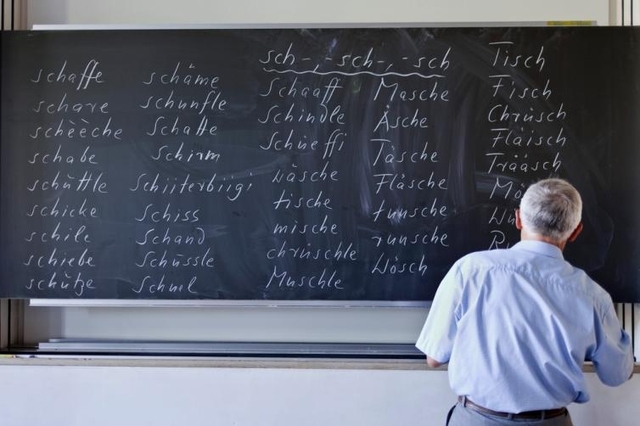 schaffe
schare
schèèche
schabe
schüttle
schicke
schile
schiebe
schütze
schäme
schunfle
Schatte
Schirm
Schiiterbiigi
Schiss
Schand
Schüssle
Schuel
sch-, -sch-, -sch
Schaaff
Schindle
Schneffi
wäsche
tische
mische
chrüschle
Muschle
Masche
Äsche
Täsche
Fläsche
tunsche
runsche
Wösch
Tisch
Fisch
Chrüsch
Fläisch
Trääsch